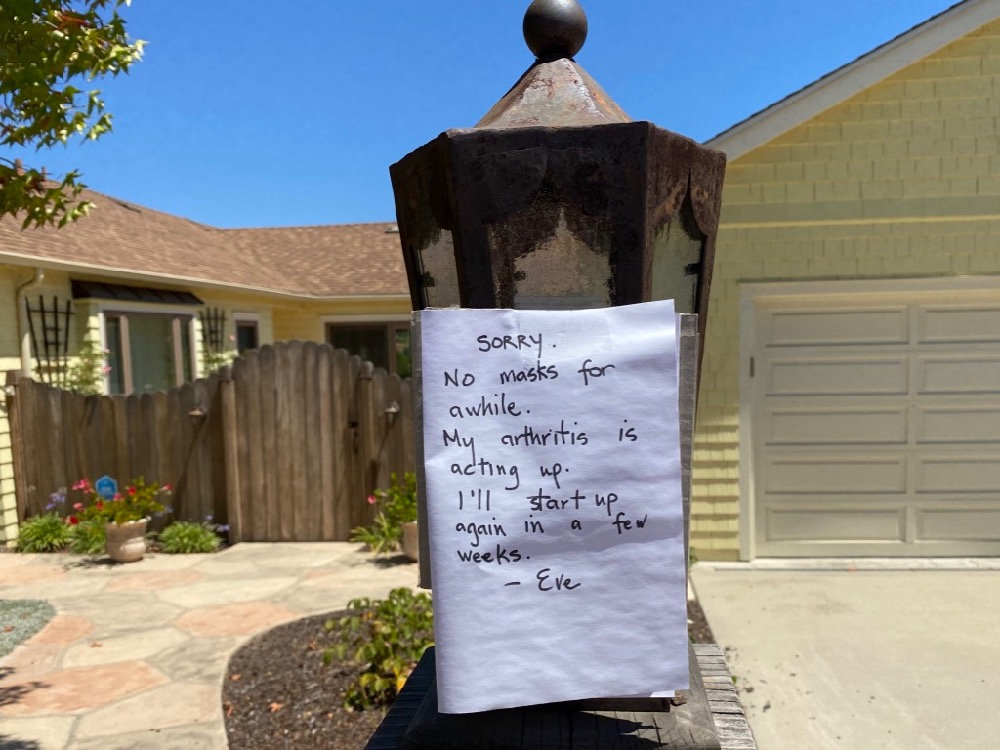 SORRY.
No masks for
awhile.
My arthritis is
acting up.
I'll start up
again in a few
weeks.
- Eve